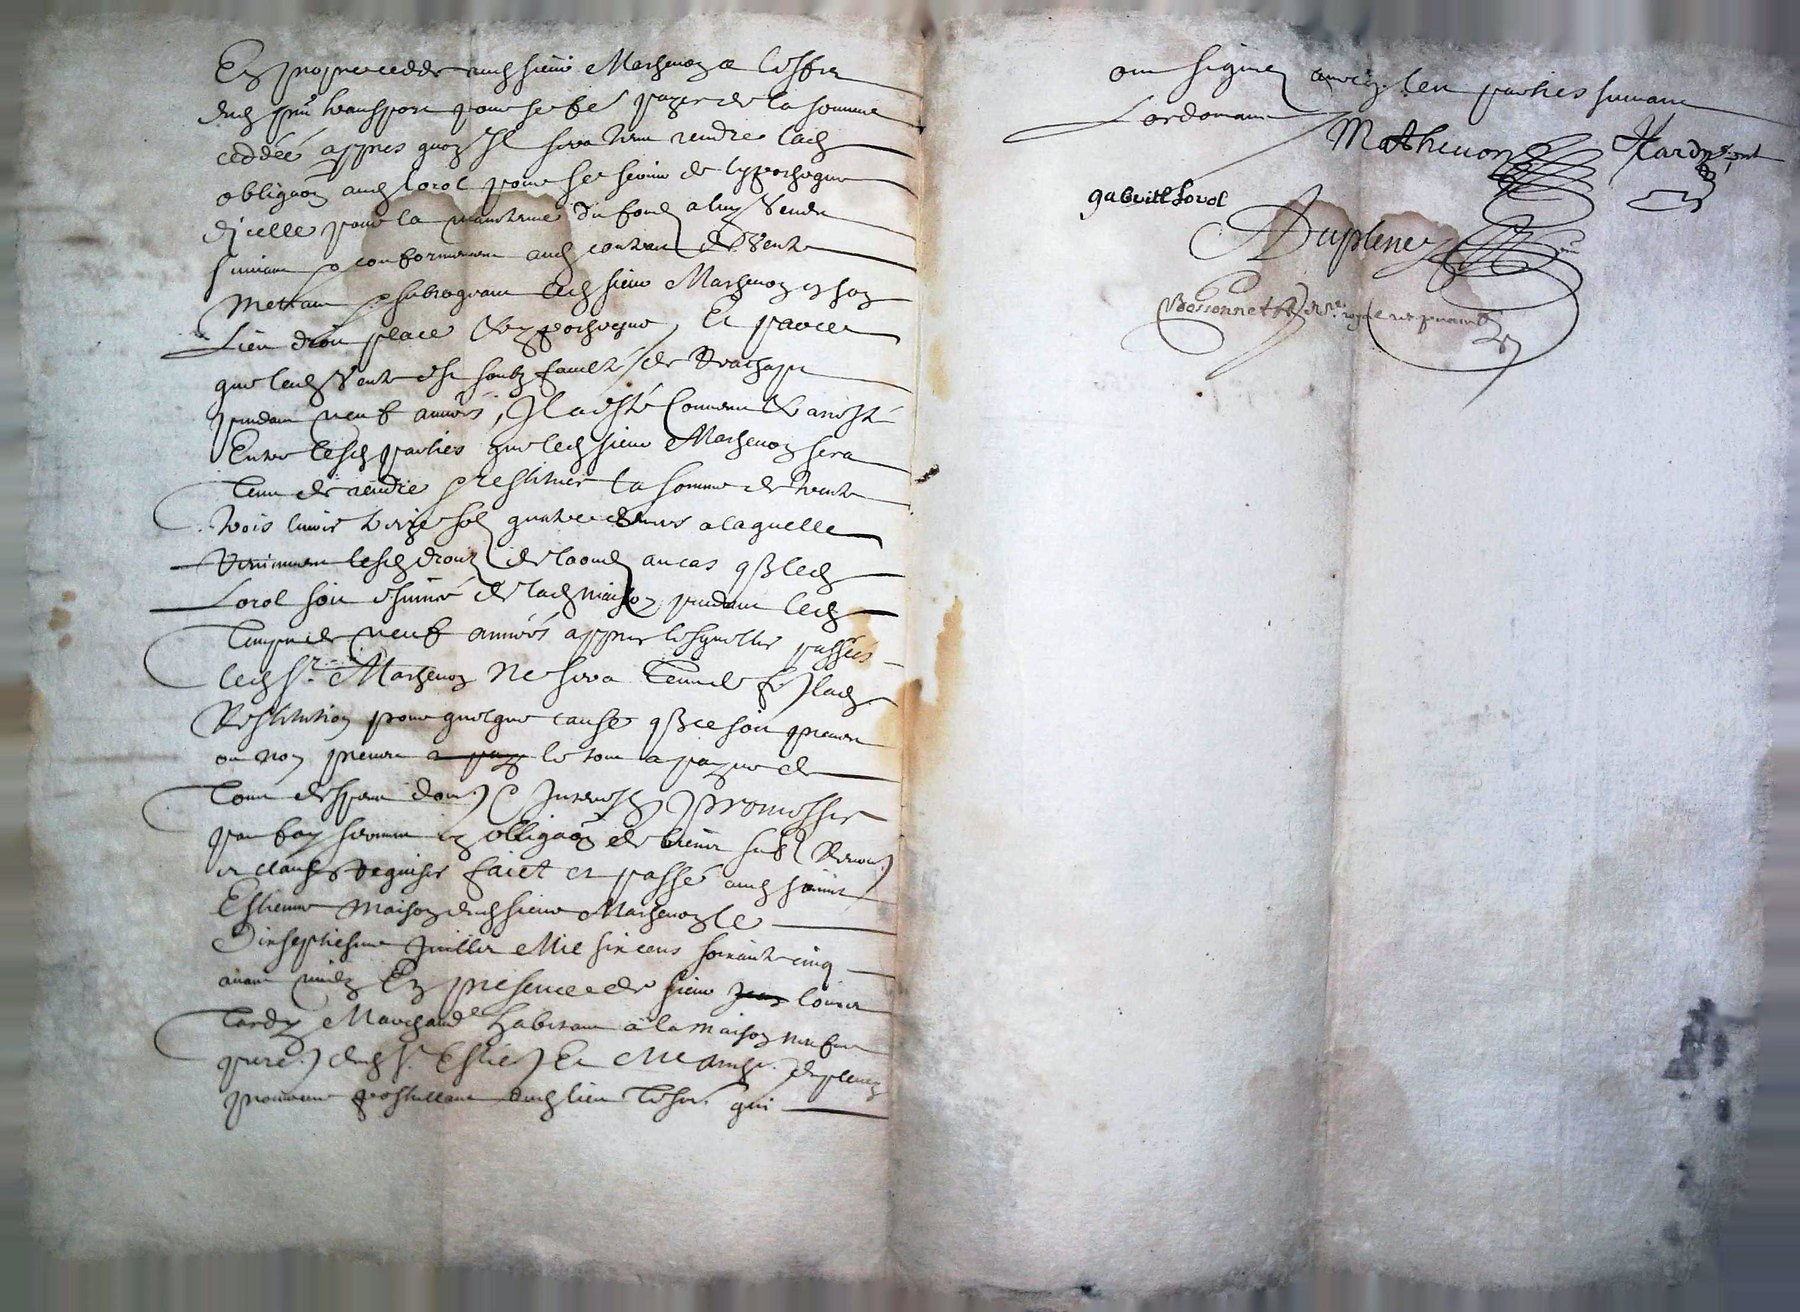 En propre cedde aud sieur Mathevon a leffect
dud pnt transport pour se fe payer de la somme
ceddée appres quoy Il sera tenu rendre lad
obligaõn aud Lorol pour se servir de lypotheque
dicelle pour la maintenue du fond a luy vendu
suivant & conformement aud contract de vente
Mettant & subrogeant led sieur Mathevon en son
Lieu droit place & ypotheque, Et parce
que lad Vente est soubz faculté de Reachapt
pendant neuf années, Il a esté convenu & aresté
Entre lesd parties que led sieur Mathevon sera
tenu de rendre & restituer la somme de trente
trois livres treize sols quatre deniers a laquelle
Reviennent lesd droitz de laodz au cas q led
Lorol soit esvincé de lad maison pendant led
temps de neuf années appres lesquelles passées
led Sr. Mathevon ne sera tenu de fe lad
Restitution pour quelque cause q ce soit preveue
ou non preveue le tout a payne de
tous despens dom Interestz Promesses
par foy serment & obligaõn de biens sub Renon
et clauses Requises faict et passé aud saint
Estienne maison dud sieur Mathevon le
Dixseptiesme Juillet Mil six cens soixante cinq
avant midy En presence de sieur louis
Tardy Marchand habitant a la maison neufve
dud S. Estien Et Me Duplency
postulant aud lieu tesm. qui
ont signé avecq les parties suivant
Lordonnance
Mathevon Tardy pnt
gabriell Lorol
Duplency
Bossonnet no.re royal recepvant